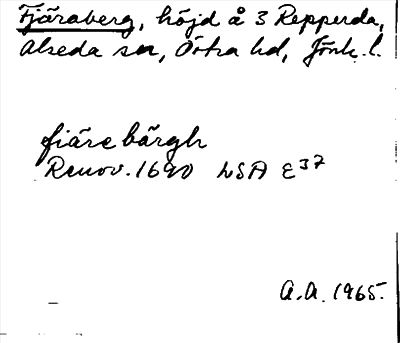 Fjäraberg, höjd å 3 Repperda,
Alseda sn, Östra hd, Jönk. l.
fiäre bärgh
Renov. 1690 LSA E37
A.A. 1965.